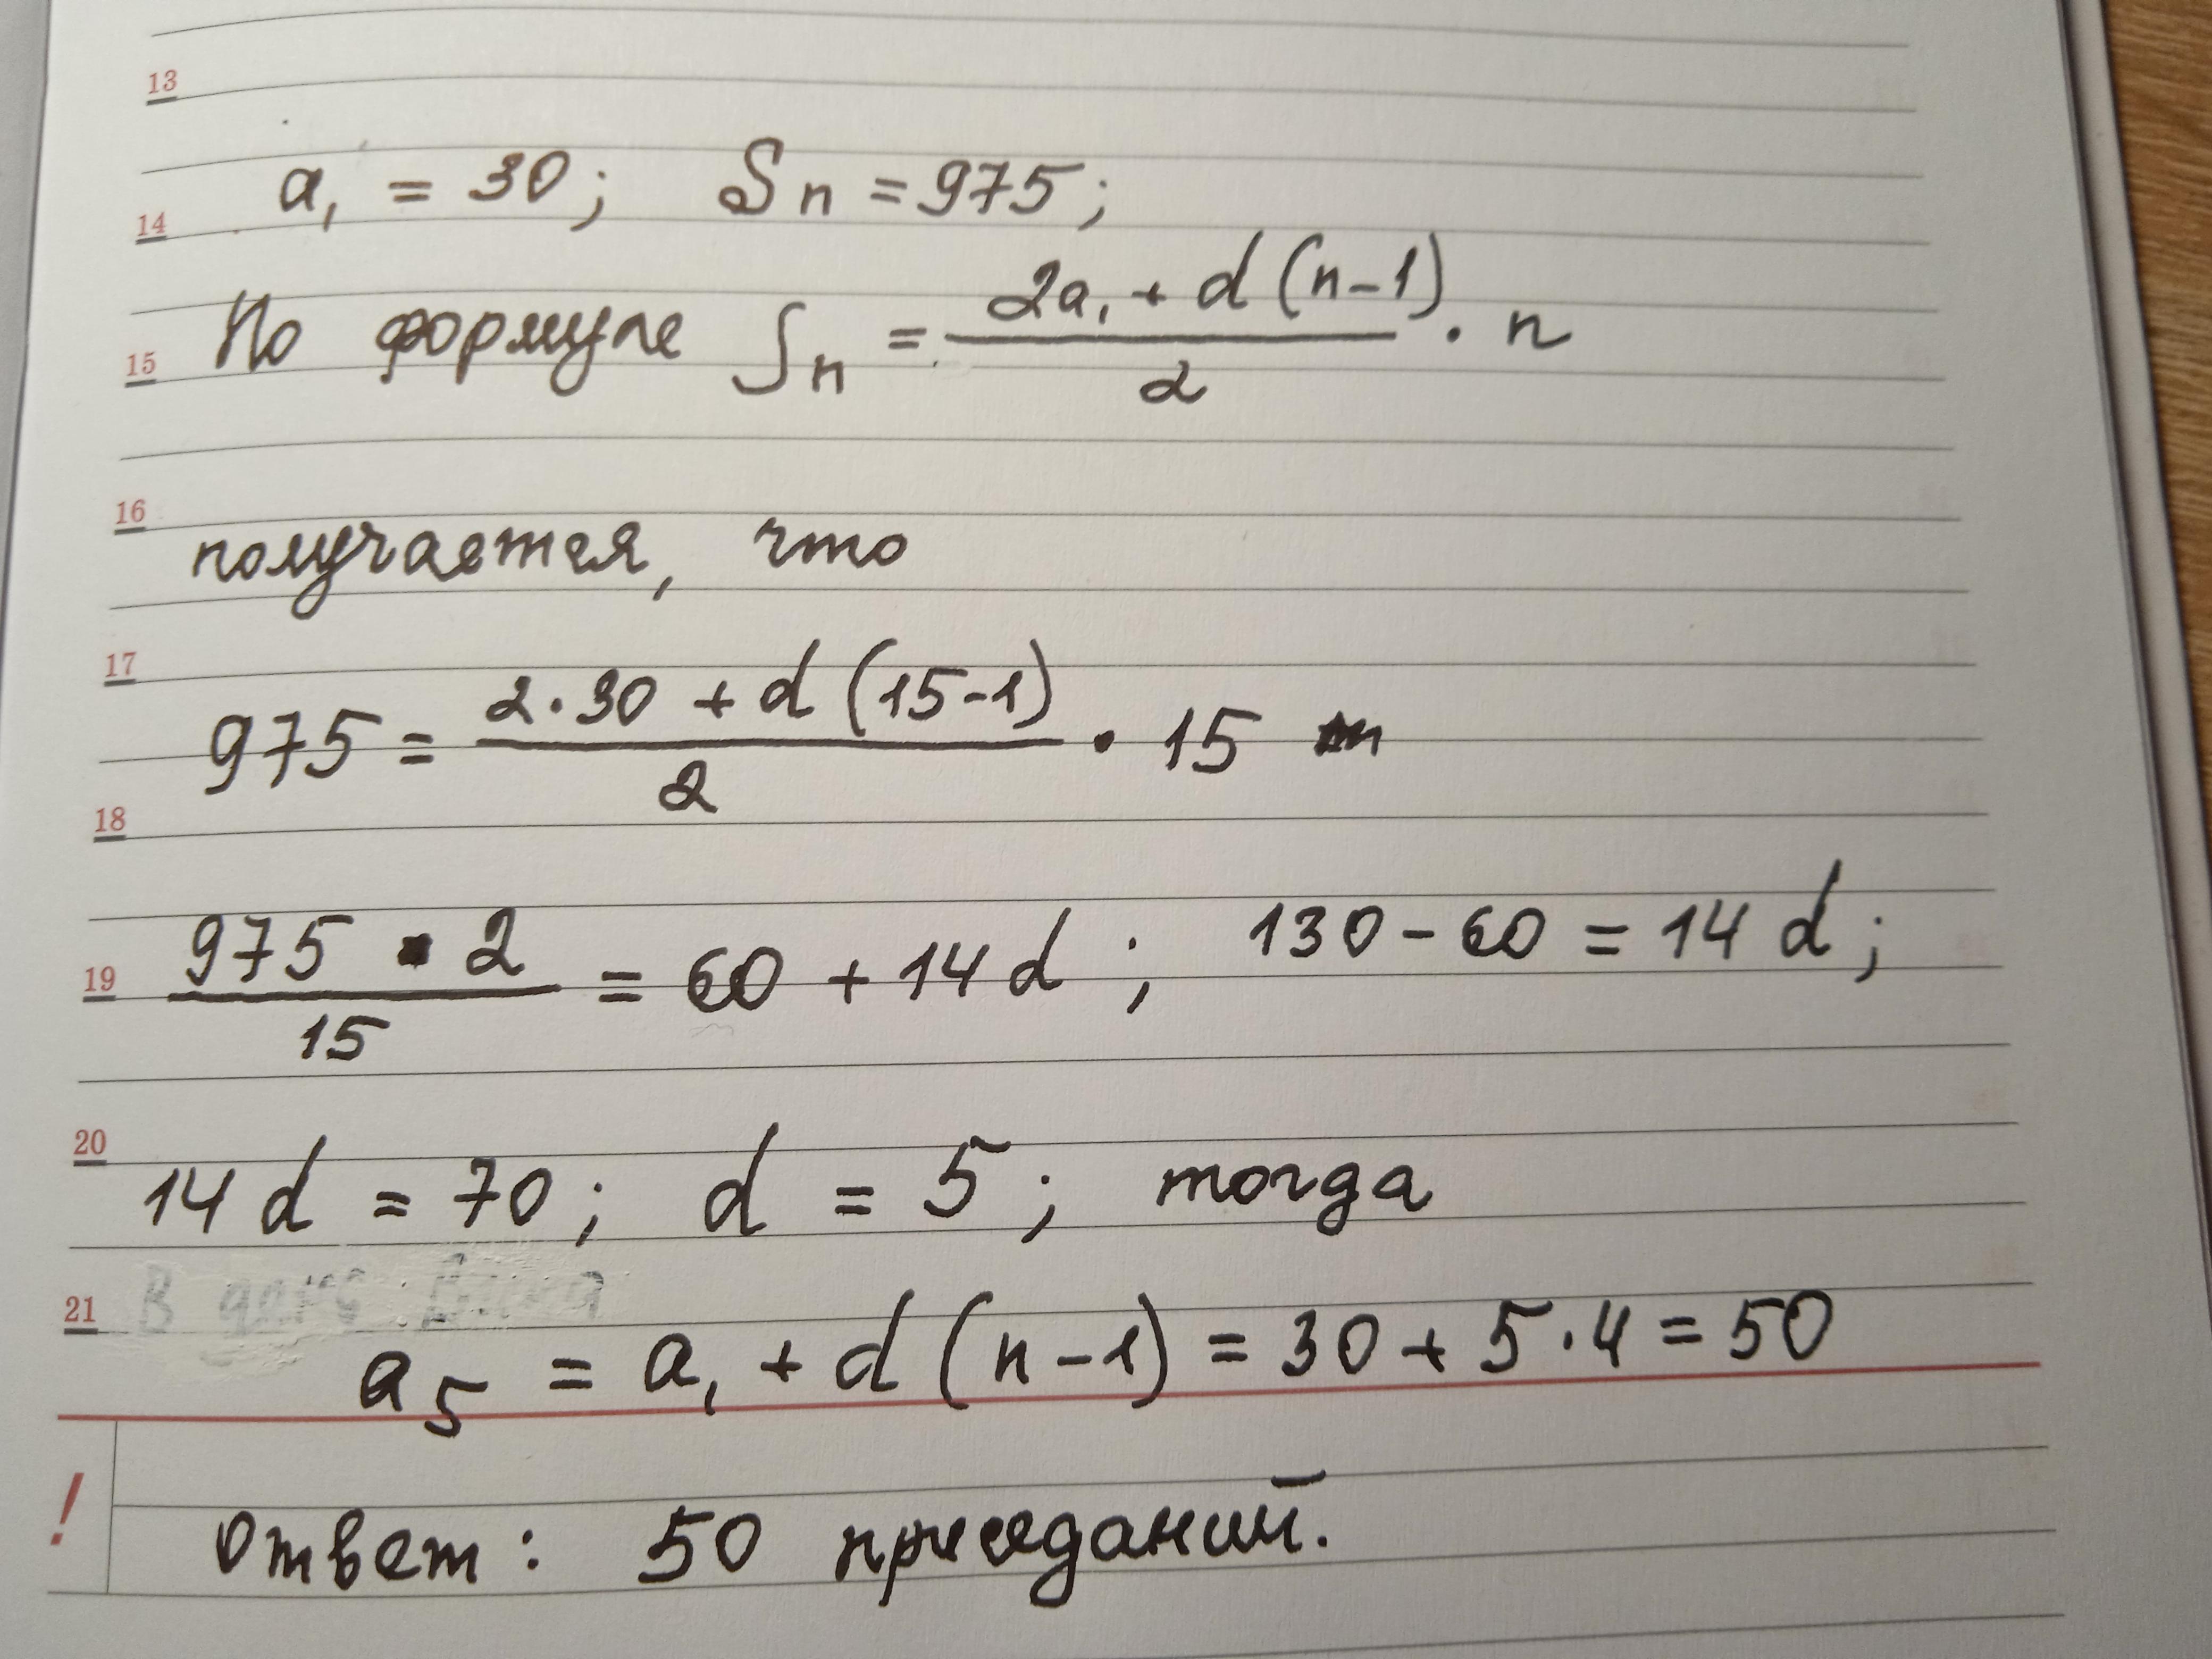 13
a₁ = 30; Sn = 975;
14
15 По формуле Sn = (2a₁ + d(n-1))/2 · n
16
получается, что
17
975 = (2·30 + d(15-1))/2 · 15
18
19 (975 · 2)/15 = 60 + 14d; 130 - 60 = 14d;
20
14d = 70; d = 5; тогда
21
a₅ = a₁ + d(n-1) = 30 + 5·4 = 50
!
Ответ: 50 приседаний.